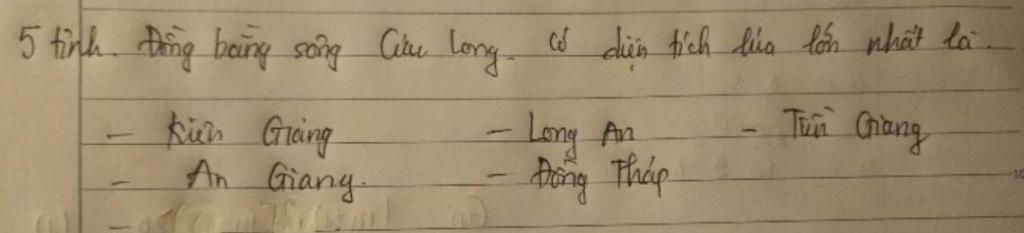 5 tỉnh. Đồng bằng sông Cửu Long. có diện tích lúa lớn nhất là.
- Kiên Giang - Long An - Tiền Giang
- An Giang. - Đồng Tháp
-